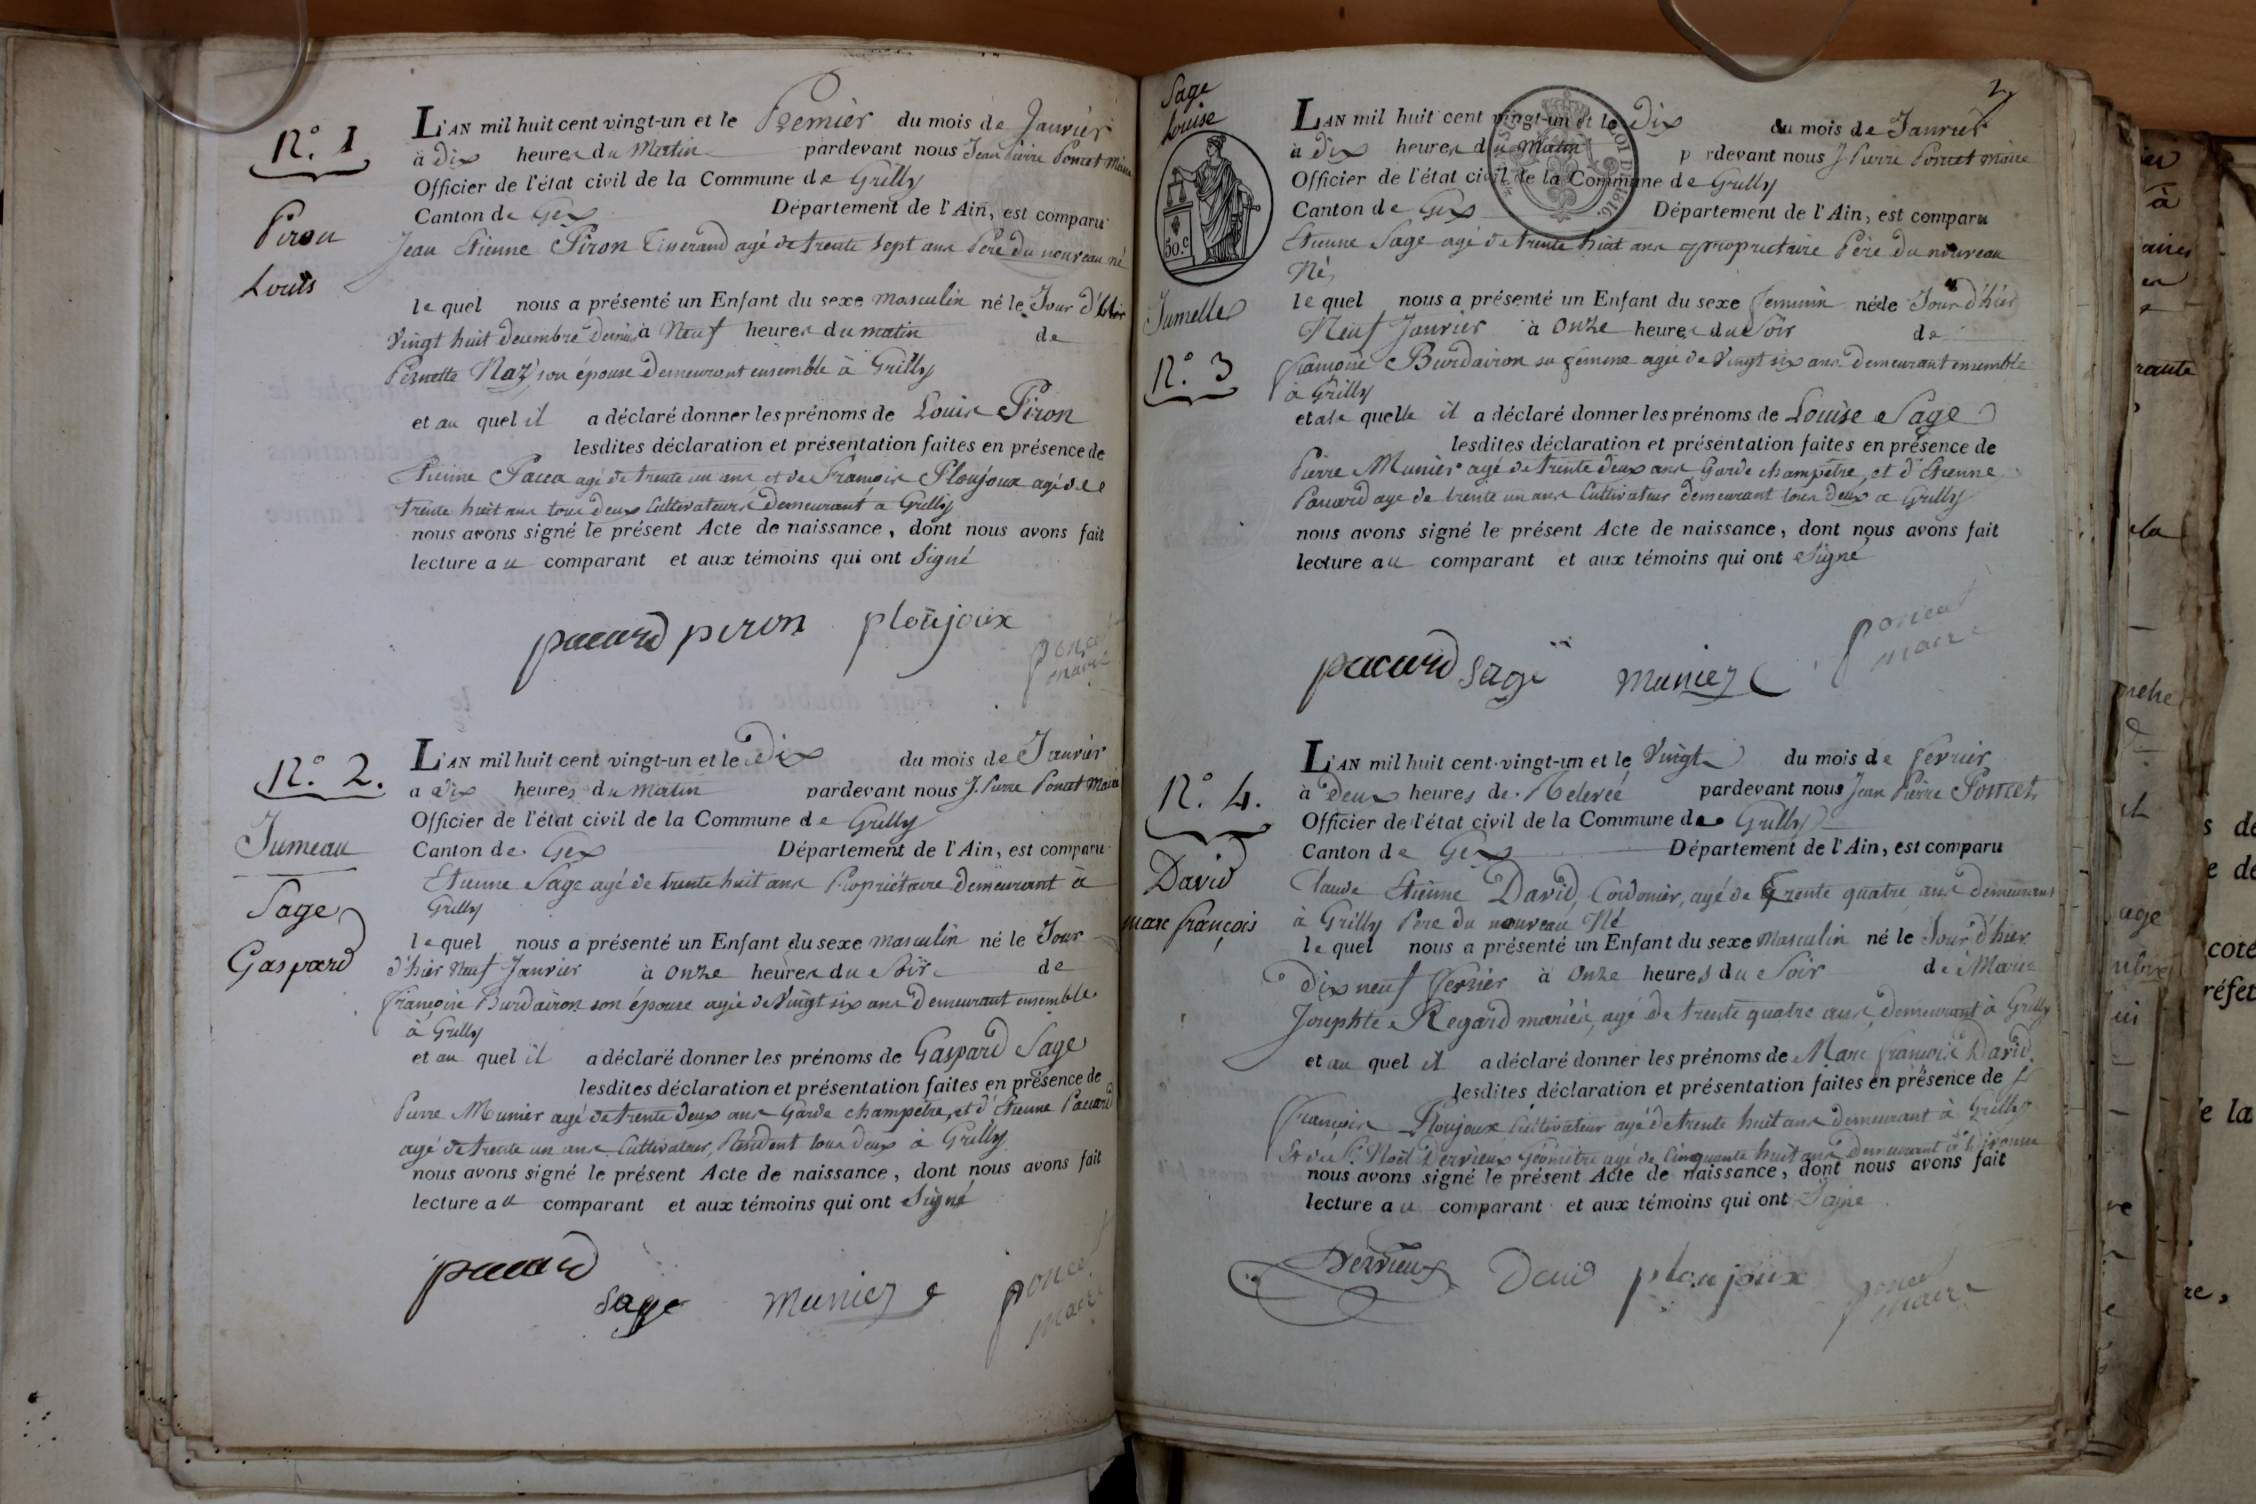 N.° 1
Piron
Louis
L'AN mil huit cent vingt-un et le Premier du mois de Janvier
à dix heures du Matin pardevant nous Jean Pierre Poncet Maire
Officier de l'état civil de la Commune de Grilly
Canton de Gex Département de l'Ain, est comparu
Jean Etienne Piron Tisserand agé de trente sept ans Père du nouveau né
le quel nous a présenté un Enfant du sexe masculin né le Jour d'hier
Vingt huit decembre dernier à Neuf heures du matin de
Pernette Naz son épouse Demeurant ensemble à Grilly
et au quel il a déclaré donner les prénoms de Louis Piron
lesdites déclaration et présentation faites en présence de
Etienne Pacca agé de trente un ans et de François Ploujoux agé de
trente huit ans tous deux Cultivateurs Demeurant à Grilly
nous avons signé le présent Acte de naissance, dont nous avons fait
lecture au comparant et aux témoins qui ont Signé
pacard piron ploujoux poncet
maire
N.° 2.
Jumeau
Sage
Gaspard
L'AN mil huit cent vingt-un et le Dix du mois de Janvier
a dix heures du Matin pardevant nous J. Pierre Poncet Maire
Officier de l'état civil de la Commune de Grilly
Canton de Gex Département de l'Ain, est comparu
Etienne Sage agé de trente huit ans Propriétaire Demeurant à
Grilly
le quel nous a présenté un Enfant du sexe masculin né le Jour
d'hier Neuf Janvier à onze heures du Soir de
françoise Burdairon son épouse agée de Vingt six ans Demeurant ensemble
à Grilly
et au quel il a déclaré donner les prénoms de Gaspard Sage
lesdites déclaration et présentation faites en présence de
Pierre Munier agé de trente deux ans Garde champêtre, et d'Etienne Pacard
agé de trente un ans Cultivateur, Resident tous deux à Grilly
nous avons signé le présent Acte de naissance, dont nous avons fait
lecture au comparant et aux témoins qui ont Signé
pacard
sage munier poncet
maire
2
Sage
Louise
50.c
LOI DE 1816.
Jumelle
N.° 3
L'AN mil huit cent vingt-un et le Dix du mois de Janvier
à dix heures du Matin pardevant nous J. Pierre Poncet maire
Officier de l'état civil de la Commune de Grilly
Canton de Gex Département de l'Ain, est comparu
Etienne Sage agé de trente huit ans propriétaire Père du nouveau
Né
le quel nous a présenté un Enfant du sexe feminin née le Jour d'hier
Neuf Janvier à Onze heures du Soir de
françoise Burdairon sa femme agée de Vingt six ans Demeurant ensemble
à Grilly
et a la quelle il a déclaré donner les prénoms de Louise Sage
lesdites déclaration et présentation faites en présence de
Pierre Munier agé de trente deux ans Garde champêtre, et d'Etienne
Pacard agé de trente un ans Cultivateur demeurant tous deux a Grilly
nous avons signé le présent Acte de naissance, dont nous avons fait
lecture au comparant et aux témoins qui ont Signé
pacard sage munier poncet
maire
N.° 4.
David
marc françois
L'AN mil huit cent vingt-un et le Vingt du mois de Fevrier
à Deux heures de Relevée pardevant nous Jean Pierre Poncet
Officier de l'état civil de la Commune de Grilly
Canton de Gex Département de l'Ain, est comparu
Claude Etienne David, Cordonier, agé de trente quatre ans demeurant
à Grilly Père du nouveau Né
le quel nous a présenté un Enfant du sexe Masculin né le Jour d'hier
Dix neuf Fevrier à onze heures du Soir de Marie
Josephte Regard mariés, agé de trente quatre ans, demeurant à Grilly
et au quel il a déclaré donner les prénoms de Marc françois David
lesdites déclaration et présentation faites en présence de
François Ploujoux Cultivateur agé de trente huit ans demeurant à Grilly
Et de S. Noël Dervieux Géomètre agé de Cinquante huit ans Demeurant à
nous avons signé le présent Acte de naissance, dont nous avons fait
lecture au comparant et aux témoins qui ont Signé
Dervieux David ploujoux poncet
maire